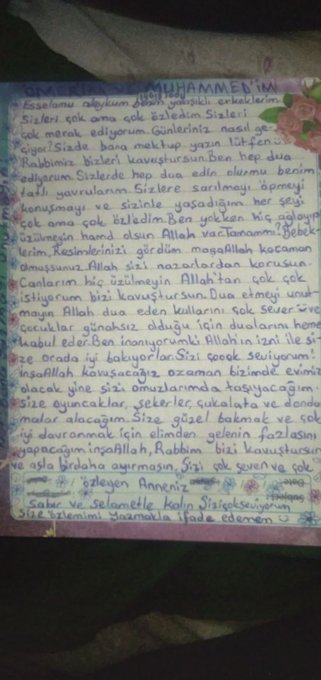 ÖMERİM VE MUHAMMED'İM
Esselamu aleykum benim yakışıklı erkeklerim
Sizleri çok ama çok özledim. Sizleri
çok merak ediyorum. Günleriniz nasıl ge-
çiyor? Sizde bana mektup yazın lütfen
Rabbimiz bizleri kavuştursun. Ben hep dua
ediyorum. Sizlerde hep dua edin olurmu benim
tatlı yavrularım. Sizlere sarılmayı öpmeyi
konuşmayı ve sizinle yaşadığım her şeyi
çok ama çok özledim. Ben yokken hiç ağlayıp
üzülmeyin hamd olsun Allah var. Tamammı? Bebek-
lerim, Resimlerinizi gördüm maşaAllah kocaman
olmuşsunuz. Allah sizi nazarlardan korusun.
Canlarım hiç üzülmeyin Allah'tan çok çok
istiyorum bizi kavuştursun. Dua etmeyi unut-
mayın Allah dua eden kullarını çok sever ve
çocuklar günahsız olduğu için dualarını hemen
kabul eder. Ben inanıyorumki Allah'ın izni ile si-
ze orada iyi bakıyorlar. Sizi çoook seviyorum!
inşaAllah kavuşacağız ozaman bizimde evimiz
olacak yine sizi omuzlarımda taşıyacağım.
Size oyuncaklar, şekerler, çukalata ve dondu
malar alacağım. Size güzel bakmak ve çok
iyi davranmak için elimden gelenin fazlasını
yapacağım inşaAllah, Rabbim bizi kavuştursun
ve asla birdaha ayırmasın. Sizi çok seven ve çok
özleyen Anneniz
Sabır ve selametle kalın Sizi çok seviyorum
size özlemimi yazmakla ifade edemem